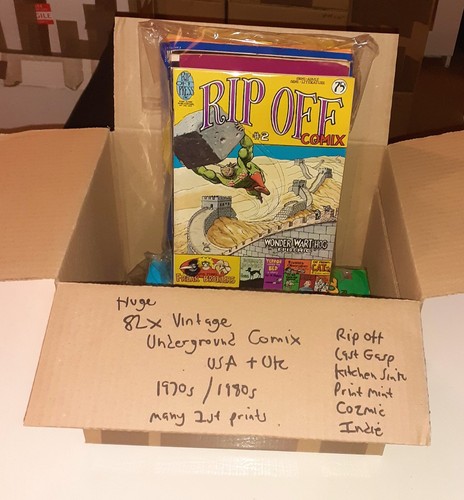 RIP OFF
COMIX
#2
75
WONDER WART-HOG
Huge
82x Vintage
Underground Comix
USA + UK
1970s / 1980s
many 1st prints
Rip Off
Last Gasp
Kitchen Sink
Print Mint
Cozmic
Indie